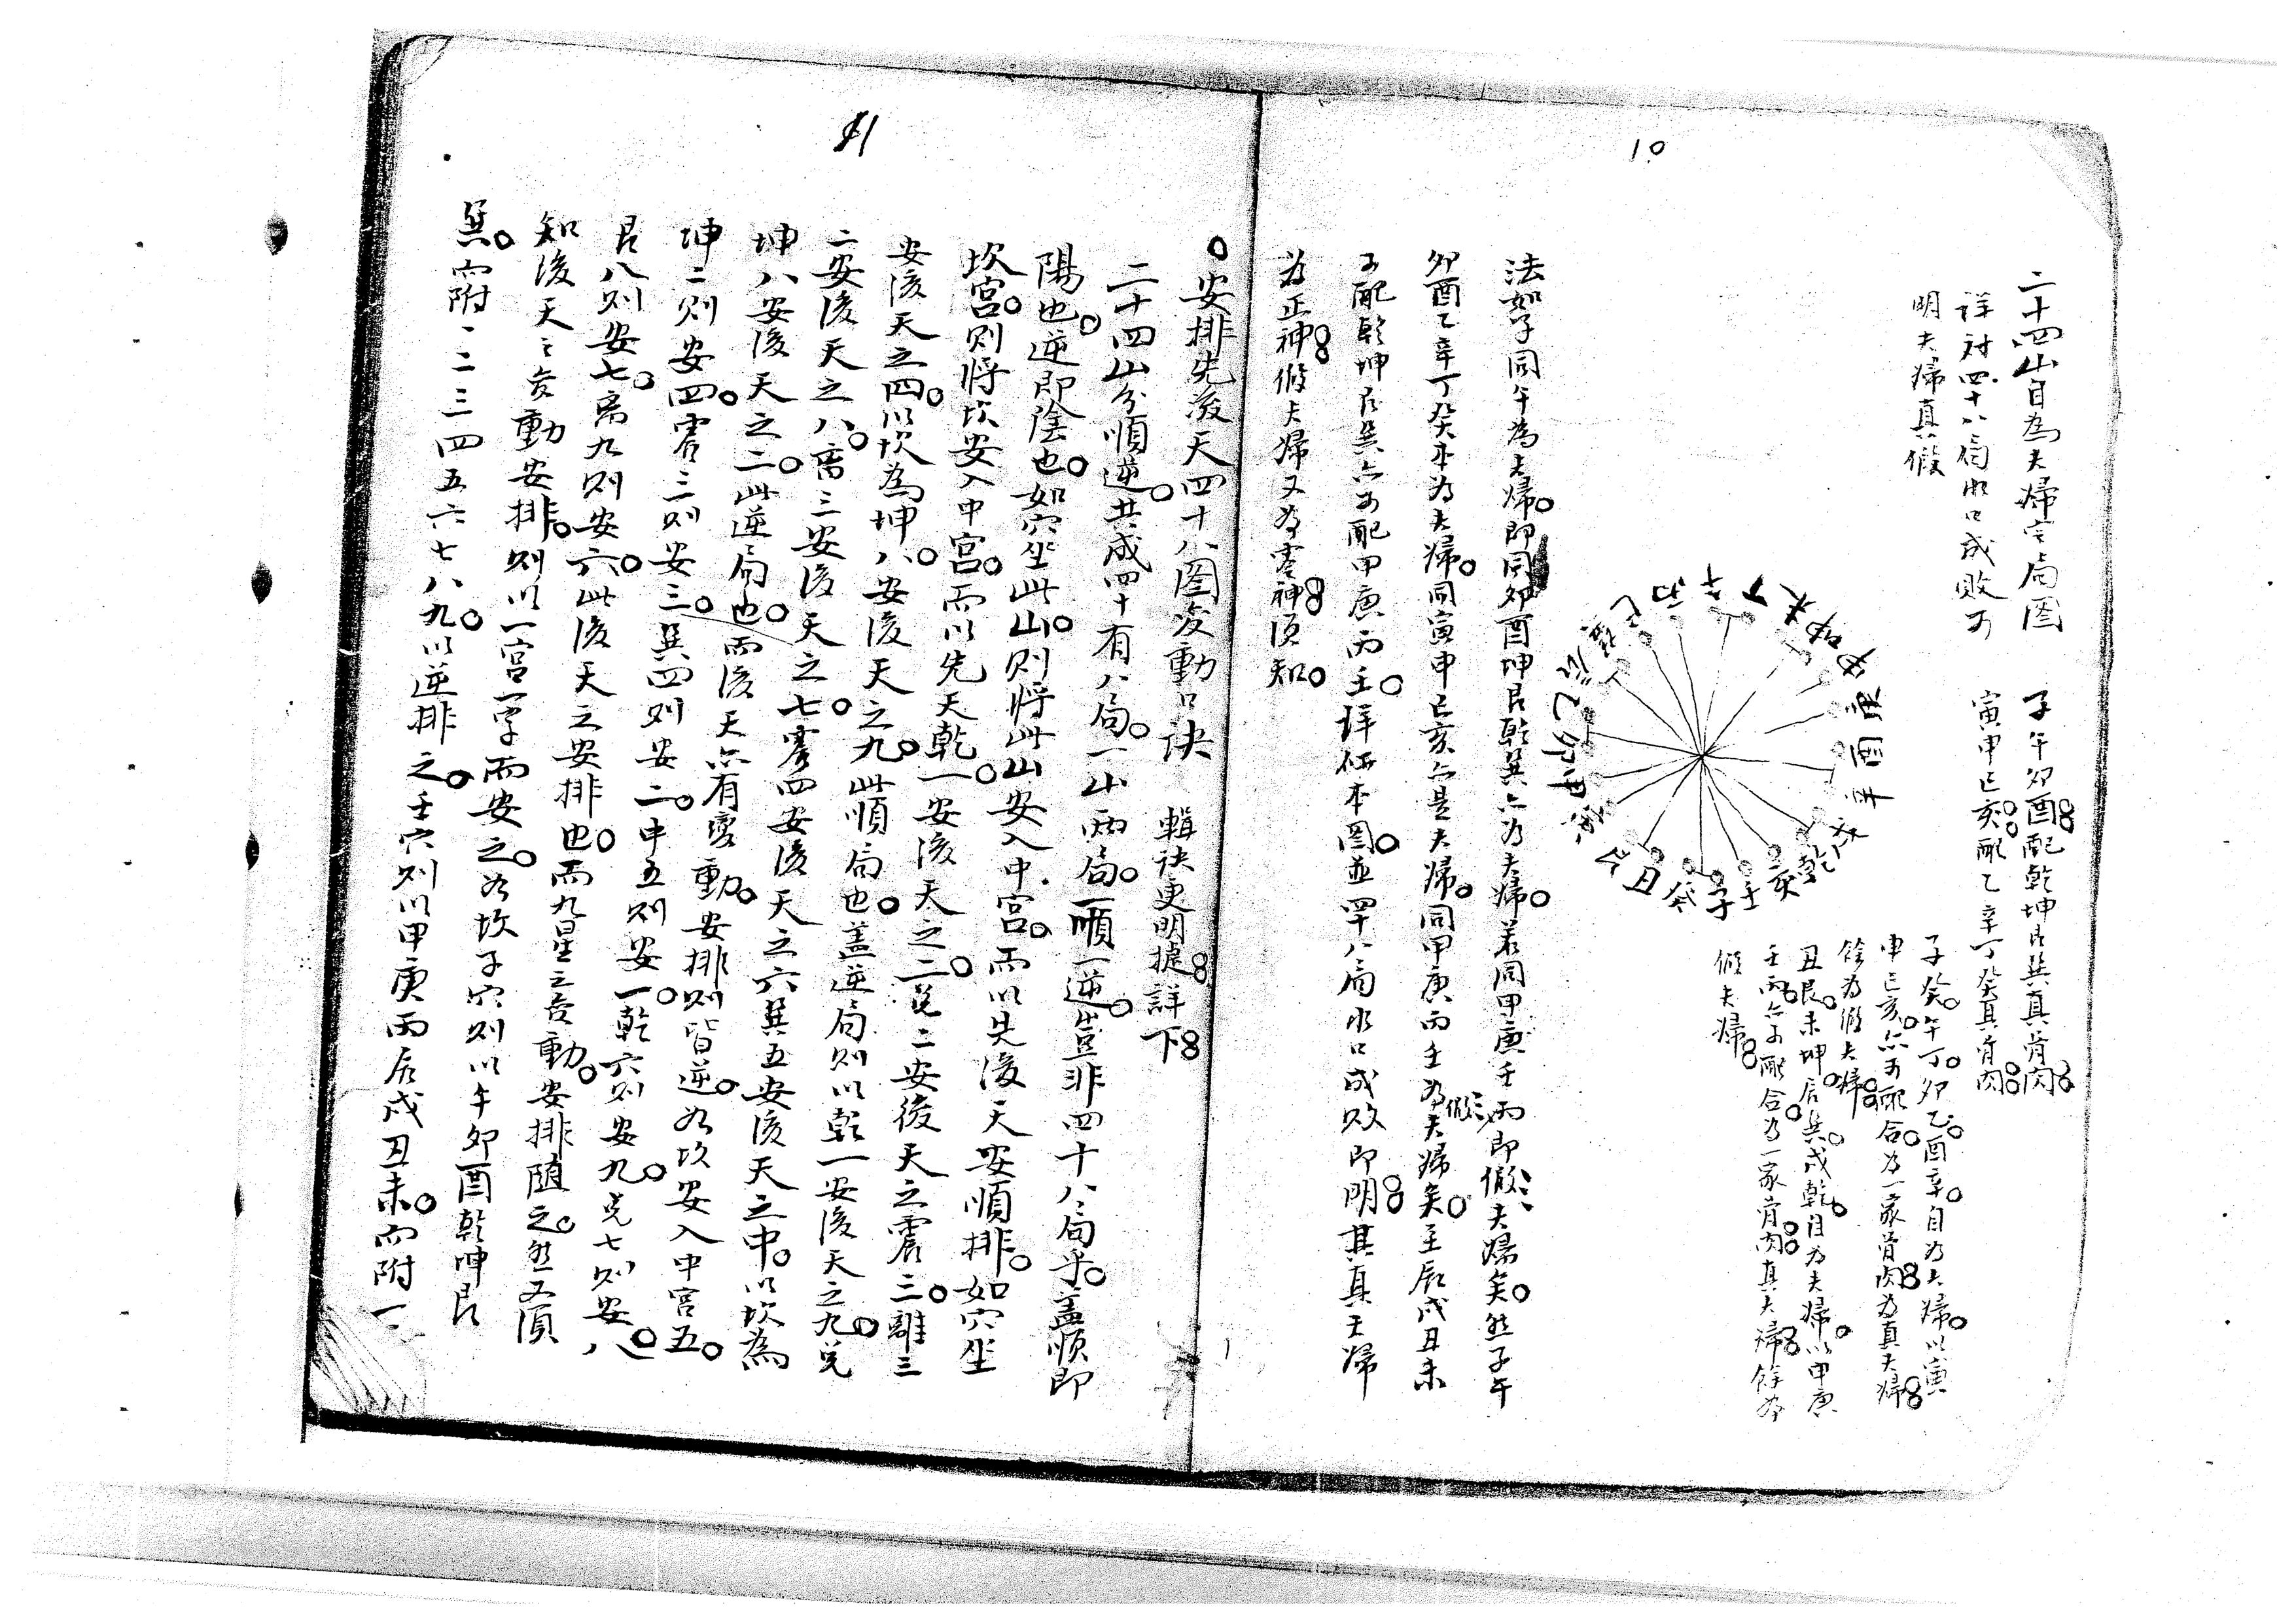 10
二十四山自為夫婦定局圖
詳対四十八局水口成敗可
明夫婦真假
子午卯酉配乾坤艮巽真骨肉
寅申巳亥配乙辛丁癸真骨肉
子癸午丁卯乙酉辛自為夫婦以寅
申巳亥亦可配合為一家骨肉為真夫婦
餘為假夫婦
丑艮未坤辰巽戌乾自為夫婦以甲庚
壬丙亦可配合為一家骨肉真夫婦餘為
假夫婦
子壬亥乾戌辛酉庚申坤未丁午丙巳巽辰乙卯甲寅艮丑癸
法如子同午為夫婦即同卯酉坤艮乾巽亦為夫婦若同甲庚壬丙即假夫婦矣然子午
卯酉乙辛丁癸本為夫婦同寅申巳亥亦是夫婦同甲庚丙壬為假夫婦矣至辰戌丑未
可配乾坤艮巽亦可配甲庚丙壬詳依本圖並四十八局水口成敗即明其真夫婦
為正神假夫婦又為零神須知
11
安排先後天四十八圖变動口訣 輯訣更明據詳下
二十四山分順逆共成四十有八局一山兩局一順一逆豈非四十八局乎盖順即
陽也逆即陰也如穴坐此山則將此山安入中宮而以先後天安順排如穴坐
坎宮則將坎安入中宮而以先天乾一安後天之二兌二安後天之震三離三
安後天之四以坎為坤八安後天之九此順局也盖逆局則以乾一安後天之九兌
二安後天之八离三安後天之七震四安後天之六巽五安後天之中以坎為
坤八安後天之二此逆局也而後天亦有变動安排則皆逆如坎安入中宮五
坤二則安四震三則安三巽四則安二中五則安一乾六則安九兌七則安八
艮八則安七离九則安六此後天之安排也而九星之变動安排随之然又須
知後天之变動安排則以一宮一字而安之如坎子穴則以午卯酉乾坤艮
巽而附一二三四五六七八九以逆排之壬穴則以甲庚丙辰戌丑未而附一